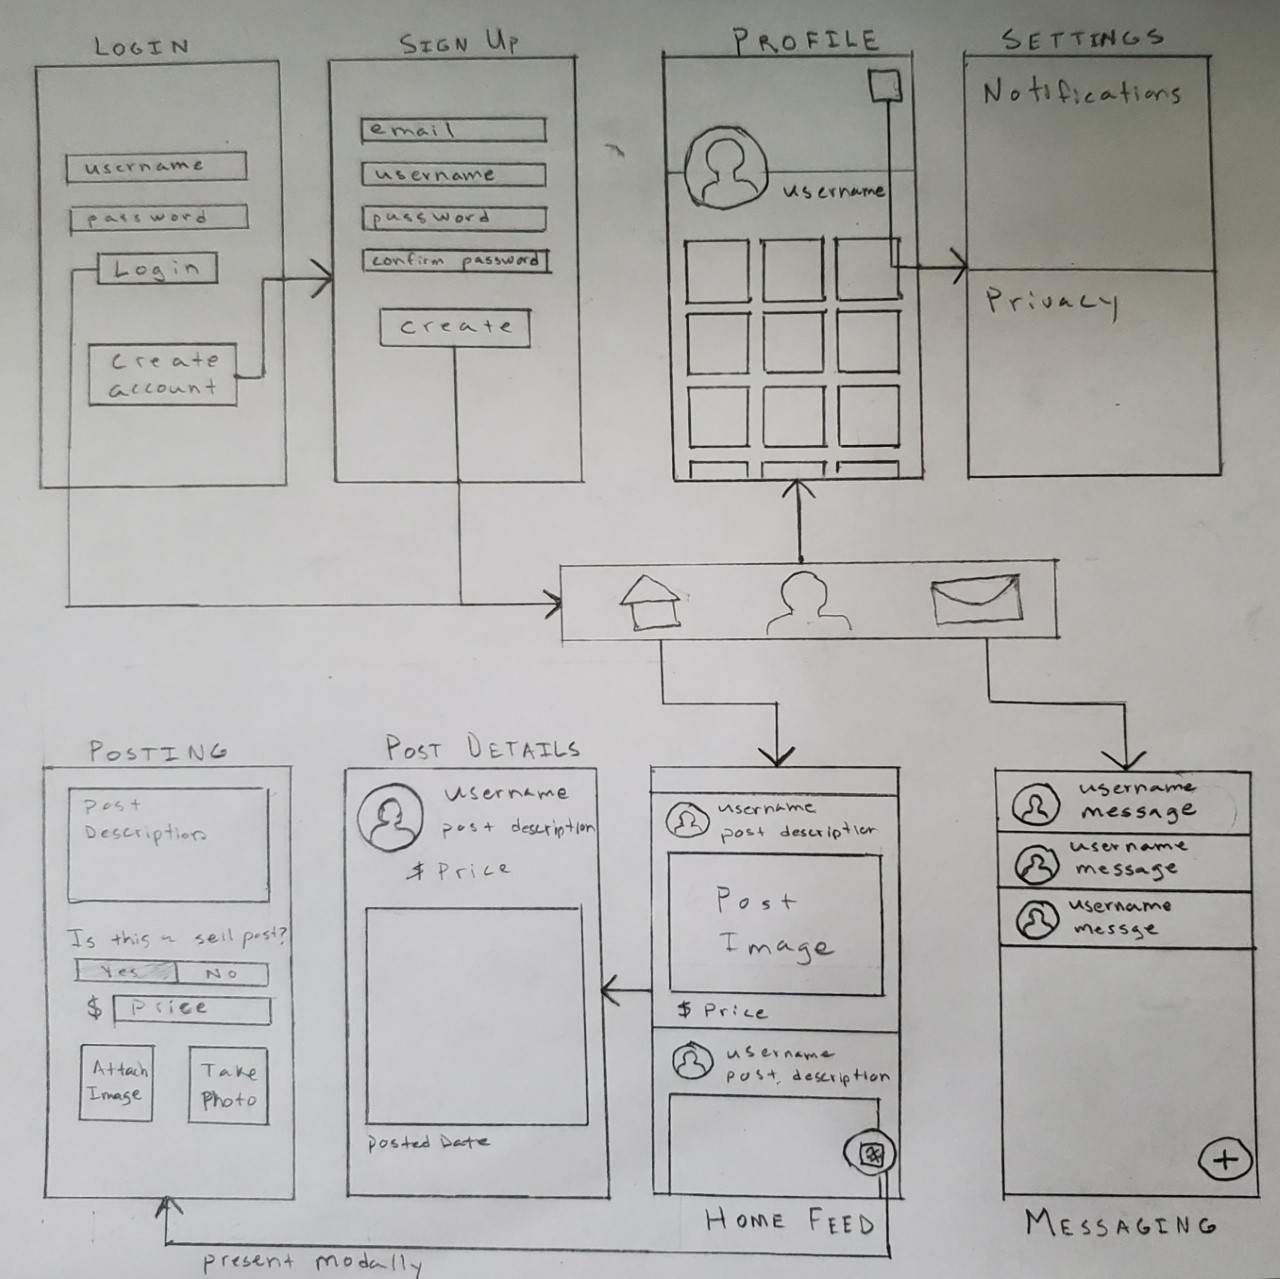 LOGIN
username
password
Login
Create
account
SIGN UP
email
username
password
confirm password
create
PROFILE
username
SETTINGS
Notifications
Privacy
POSTING
Post
Description
Is this a sell post?
Yes
No
$ Price
Attach
Image
Take
Photo
POST DETAILS
username
post description
$ Price
posted Date
username
post description
Post
Image
$ Price
username
post description
HOME FEED
username
message
username
message
username
messge
+
MESSAGING
present modally